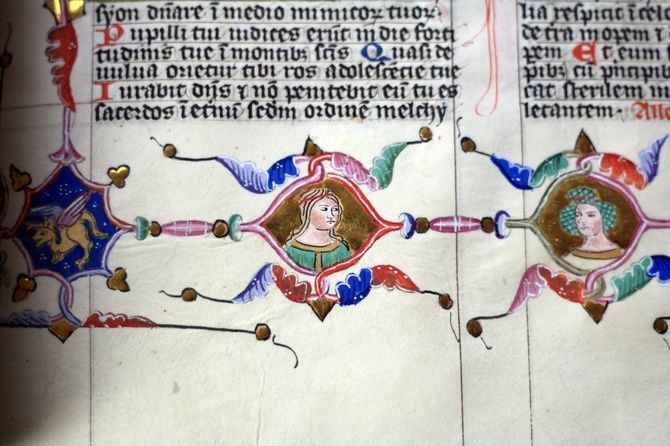 syon dñare ĩ medio inimicoꝝ tuoꝝ.
Pupilli tui iudices erũt in die forti
tudinis tue ĩ montibꝫ scĩs Quasi de
uulua orietur tibi ros adolescẽtie tue
Iurabit dñs ⁊ nõ penitebit eũ tu es
sacerdos ĩ etnũ scdm ordinẽ melchy
lia respicit ĩ cel
de tra inopem ⁊
pem Et eum
pibꝫ cũ pncipi
cat sterilem in
letantem. Alle